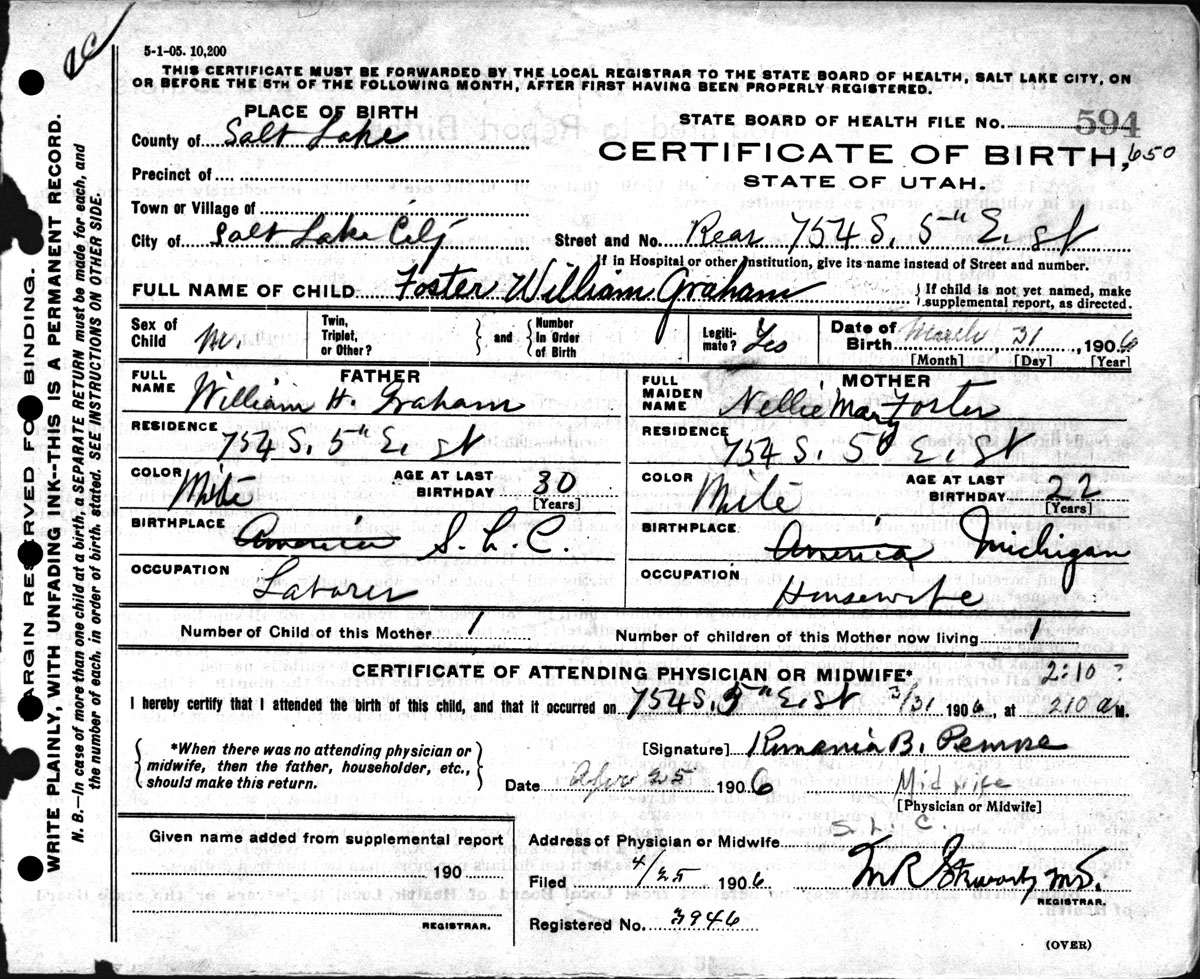 5-1-05. 10,200
THIS CERTIFICATE MUST BE FORWARDED BY THE LOCAL REGISTRAR TO THE STATE BOARD OF HEALTH, SALT LAKE CITY, ON
OR BEFORE THE 5TH OF THE FOLLOWING MONTH, AFTER FIRST HAVING BEEN PROPERLY REGISTERED.
PLACE OF BIRTH
STATE BOARD OF HEALTH FILE No. 594
County of Salt Lake
CERTIFICATE OF BIRTH, 650
Precinct of
STATE OF UTAH.
Town or Village of
City of Salt Lake City Street and No. Rear 754 S. 5th E. st
If in Hospital or other Institution, give its name instead of Street and number.
FULL NAME OF CHILD Foster William Graham { If child is not yet named, make supplemental report, as directed.
Sex of Child M. Twin, Triplet, or Other? } and { Number In Order of Birth Legitimate? Yes Date of Birth March 31, 1906
[Month] [Day] [Year]
FATHER
FULL NAME William H. Graham
RESIDENCE 754 S. 5th E. st
COLOR White AGE AT LAST BIRTHDAY 30
[Years]
BIRTHPLACE America S. L. C.
OCCUPATION Laborer
MOTHER
FULL MAIDEN NAME Nellie May Foster
RESIDENCE 754 S. 5th E. St
COLOR White AGE AT LAST BIRTHDAY 22
[Years]
BIRTHPLACE America, Michigan
OCCUPATION Housewife
Number of Child of this Mother 1 Number of children of this Mother now living 1
CERTIFICATE OF ATTENDING PHYSICIAN OR MIDWIFE* 2:10 ?
I hereby certify that I attended the birth of this child, and that it occurred on 754 S. 5th E. st 3/31 1906, at 210 a M.
{ *When there was no attending physician or
midwife, then the father, householder, etc.,
should make this return. }
[Signature] Romania B. Penrose
Date Apr 25 1906 Mid wife
[Physician or Midwife]
Given name added from supplemental report
190
REGISTRAR.
Address of Physician or Midwife S. L. C.
Filed 4/25 1906
REGISTRAR.
Registered No. 3946
(OVER)
MARGIN RESERVED FOR BINDING.
WRITE PLAINLY, WITH UNFADING INK--THIS IS A PERMANENT RECORD.
N. B.—In case of more than one child at a birth, a SEPARATE RETURN must be made for each, and
the number of each, in order of birth, stated. SEE INSTRUCTIONS ON OTHER SIDE.